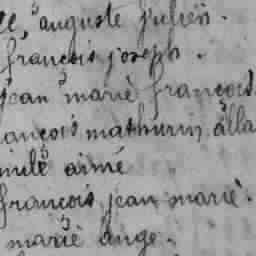 auguste julien.
françois joseph.
jean marie françois
ançois mathurin alla
aimé
françois, jean marie.
marie ange.